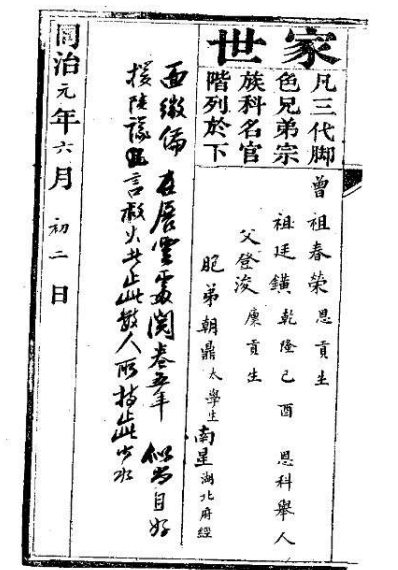 家世
凡三代脚
色兄弟宗
族科名官
階列於下
曾祖春榮恩貢生
祖廷鐄乾隆己酉恩科舉人
父登浚廩貢生
胞弟朝鼎太學生 南星湖北府經
面 在展雲處閱卷五年 自好
援 言救火 止此數人所持止此少水
同治元年六月初二日